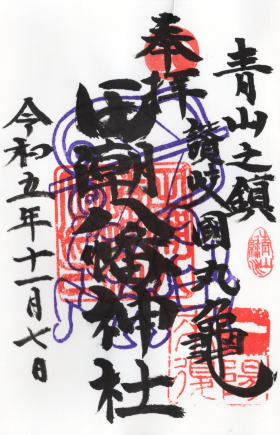 青山之鎮
讃岐國丸亀
奉拝
田潮八幡神社
令和五年十一月七日